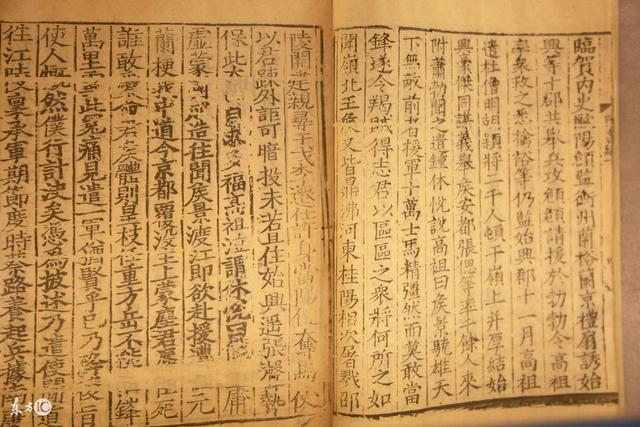 臨賀內史歐陽頠監衡州蘭裕蘭京禮扇誘始
興等十郡共舉兵攻頠頠請援於勃勃令高祖
率衆救之悉擒裕等仍監始興郡十一月高祖
遣杜僧明胡穎將二千人頓于嶺上并厚結始
興豪傑同謀義舉侯安都張偲等率千餘人來
附蕭勃聞之遣鍾休悅說高祖曰侯景驍雄天
下無敵前者援軍十萬士馬精彊然而莫敢當
鋒遂令羯賊得志君以區區之衆將何所之如
聞嶺北王侯又皆鼎沸河東桂陽相次屠戮邵
陵開建親尋干戈李遷仕許身當陽便奪馬仗
以君疎外詎可暗投未若且住始興遙張聲勢
保此太山自求多福高祖泣謂休悅曰庸
虛蒙國成造往聞侯景渡江即欲赴援遭元
蘭梗我中道今京都覆沒主上蒙塵君辱臣死
誰敢愛命君侯體則皇枝任重方岳不能鋒
萬里雪此冤痛見遣一軍猶賢乎已乃降後旨
使人慨然僕行計決矣憑為披述乃遣使間道
往江陵稟承軍期節度時蔡路養起兵據南